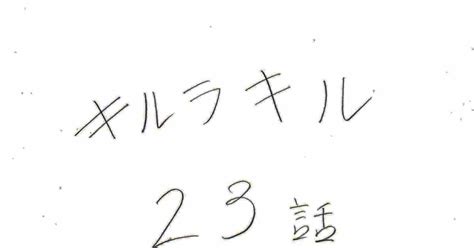 キルラキル
23 話